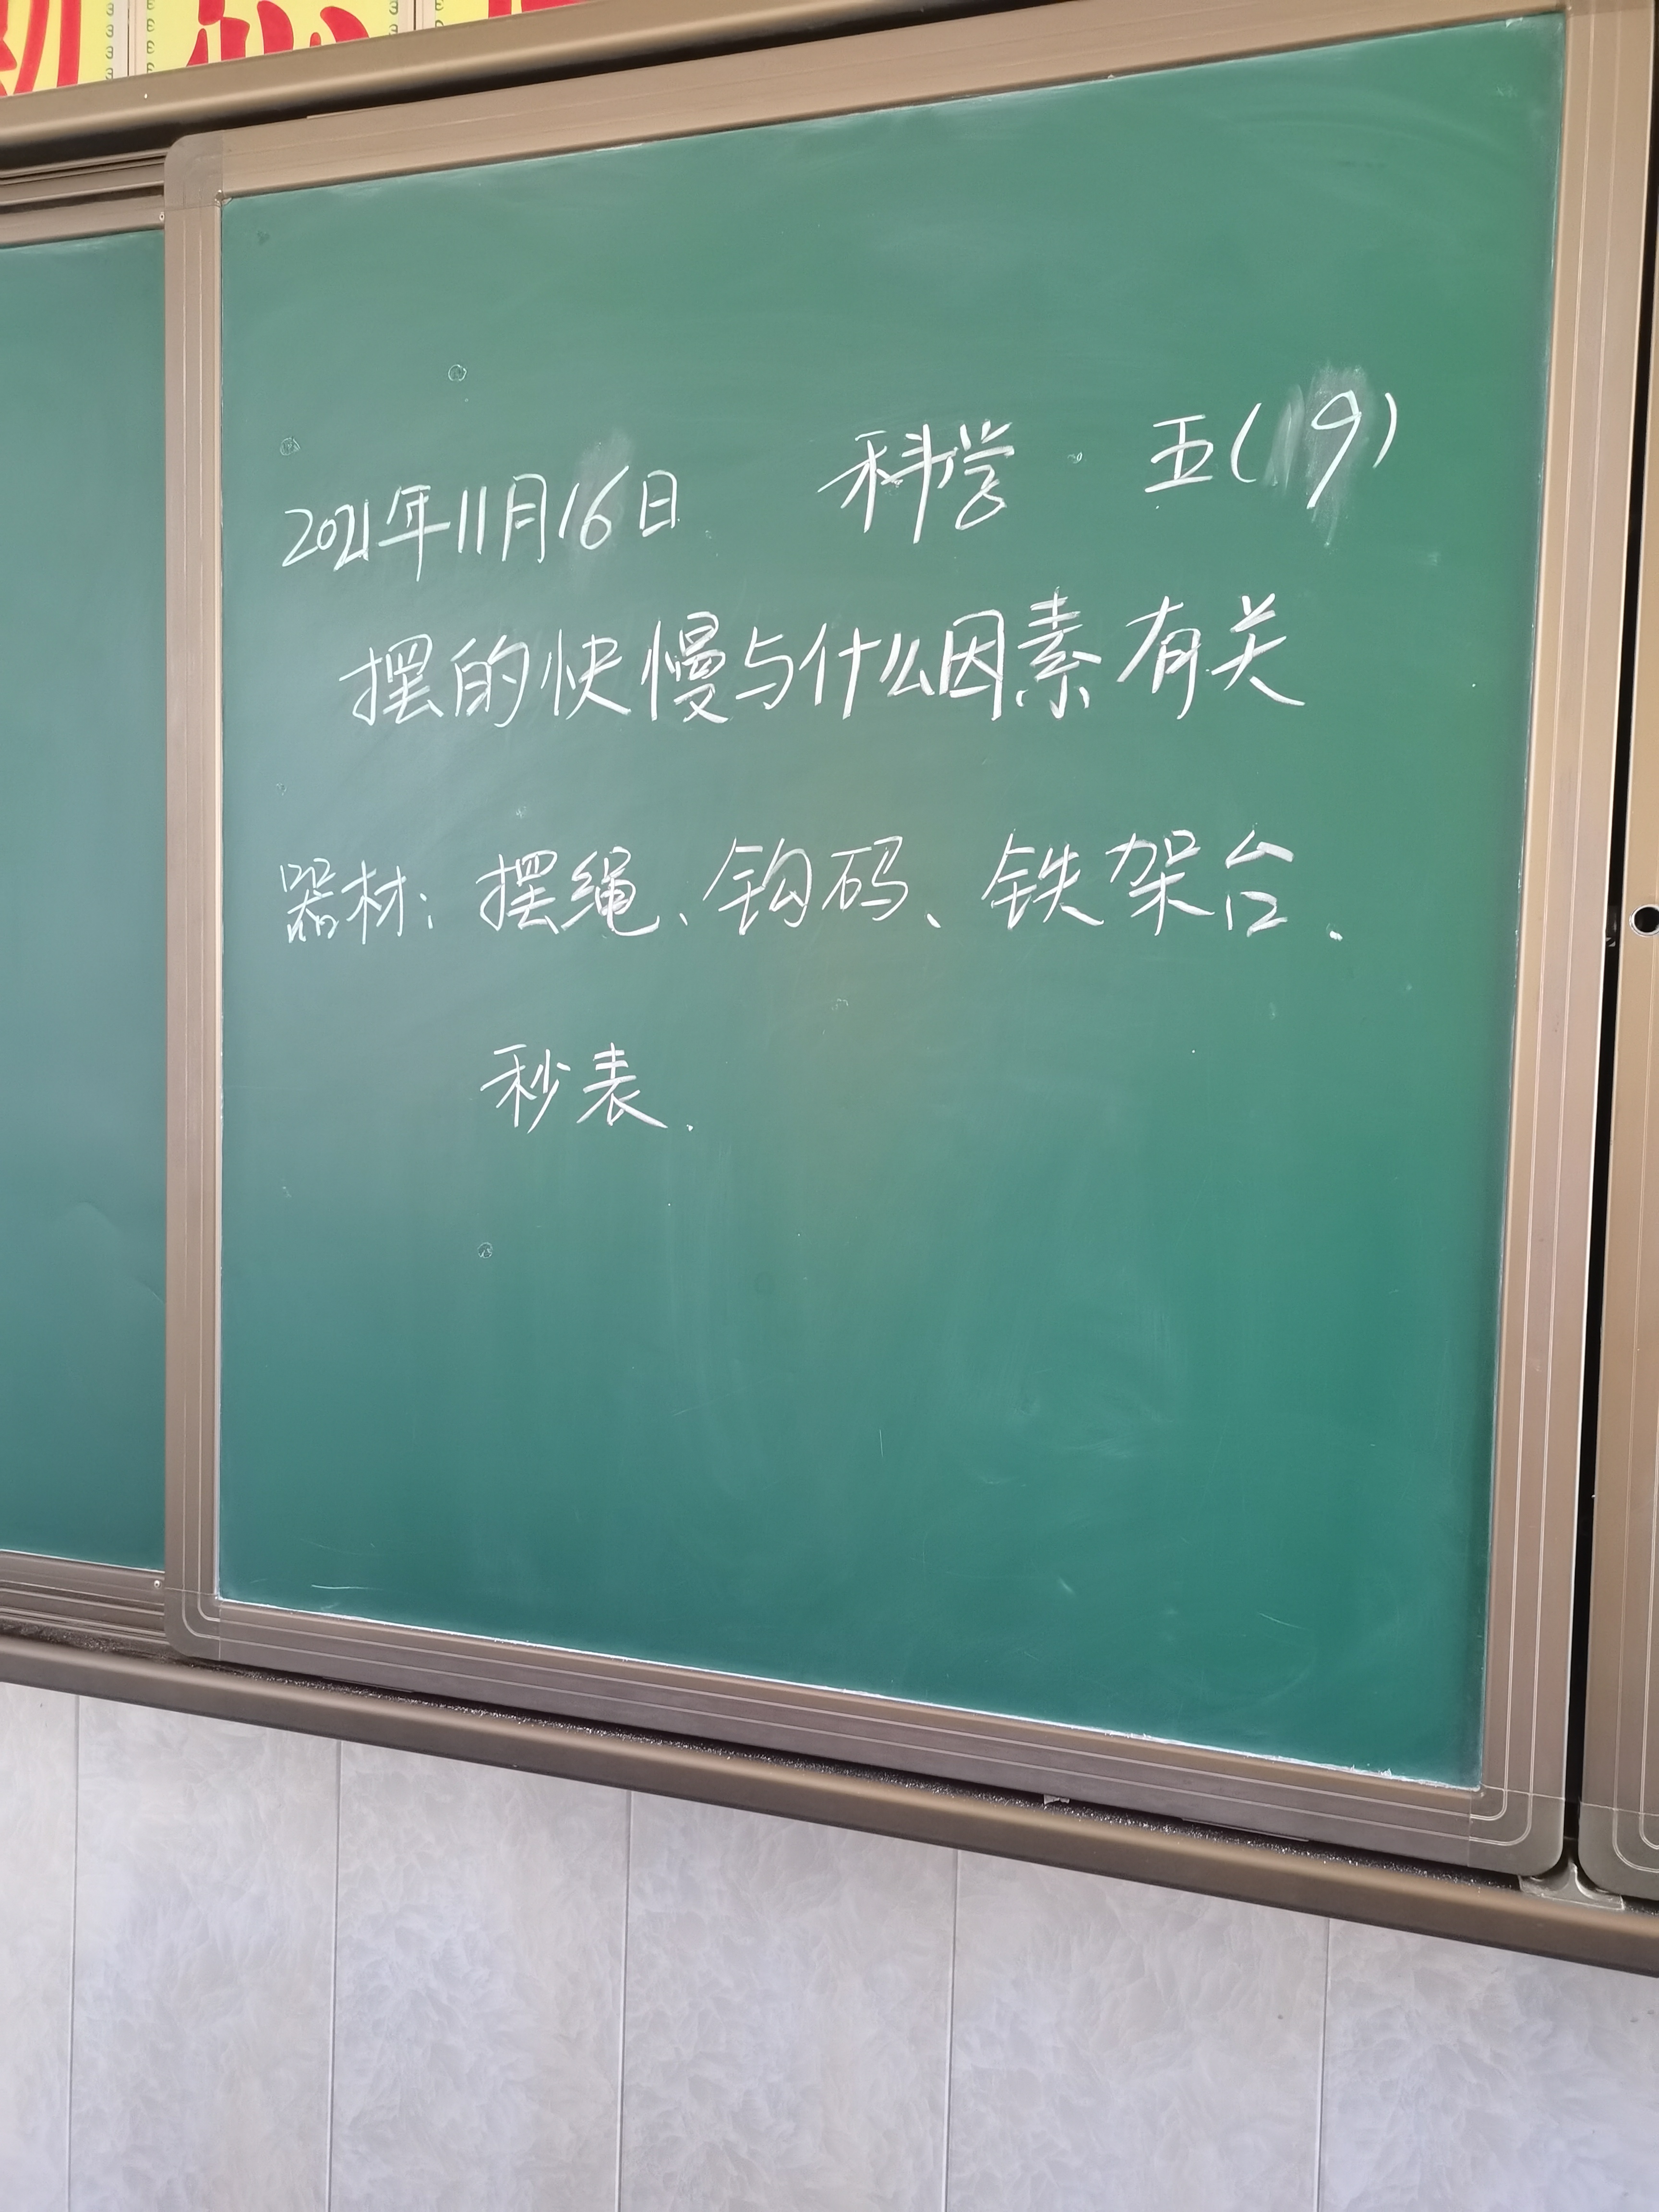 2021年11月16日 科学 五(9)
摆的快慢与什么因素有关
器材：摆绳、钩码、铁架台、
秒表.